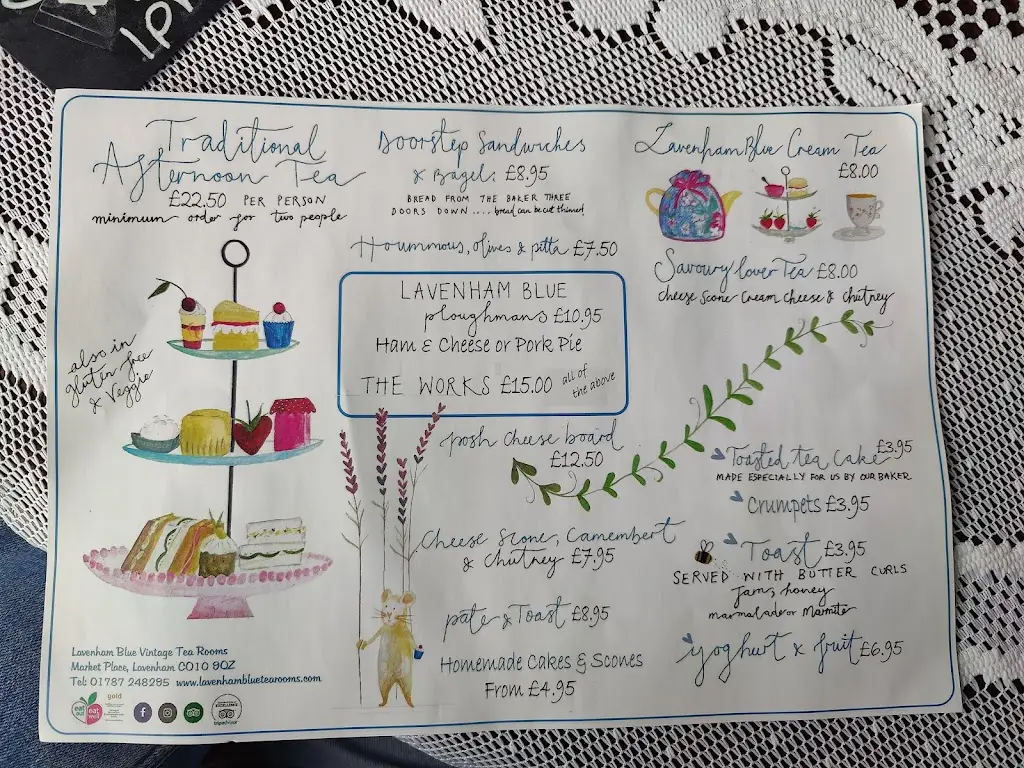 Traditional
Afternoon Tea
£22.50 PER PERSON
minimum order for two people
also in
gluten free
& Veggie
Lavenham Blue Vintage Tea Rooms
Market Place, Lavenham CO10 9QZ
Tel: 01787 248295 www.lavenhambluetearooms.com
eat out
eat well
gold
tripadvisor
Doorstep Sandwiches
& Bagels £8.95
BREAD FROM THE BAKER THREE
DOORS DOWN .... bread can be cut thinner!
Hoummous, olives & pitta £7.50
LAVENHAM BLUE
ploughmans £10.95
Ham & Cheese or Pork Pie
THE WORKS £15.00 all of
the above
posh cheese board
£12.50
Cheese Scone, Camembert
& Chutney £7.95
pate & Toast £8.95
Homemade Cakes & Scones
From £4.95
Lavenham Blue Cream Tea
£8.00
Savoury lover Tea £8.00
cheese scone cream cheese & chutney
Toasted tea Cake £3.95
MADE ESPECIALLY FOR US BY OUR BAKER
Crumpets £3.95
Toast £3.95
SERVED WITH BUTTER CURLS
Jam, honey
marmalade or Marmite
yoghurt & fruit £6.95